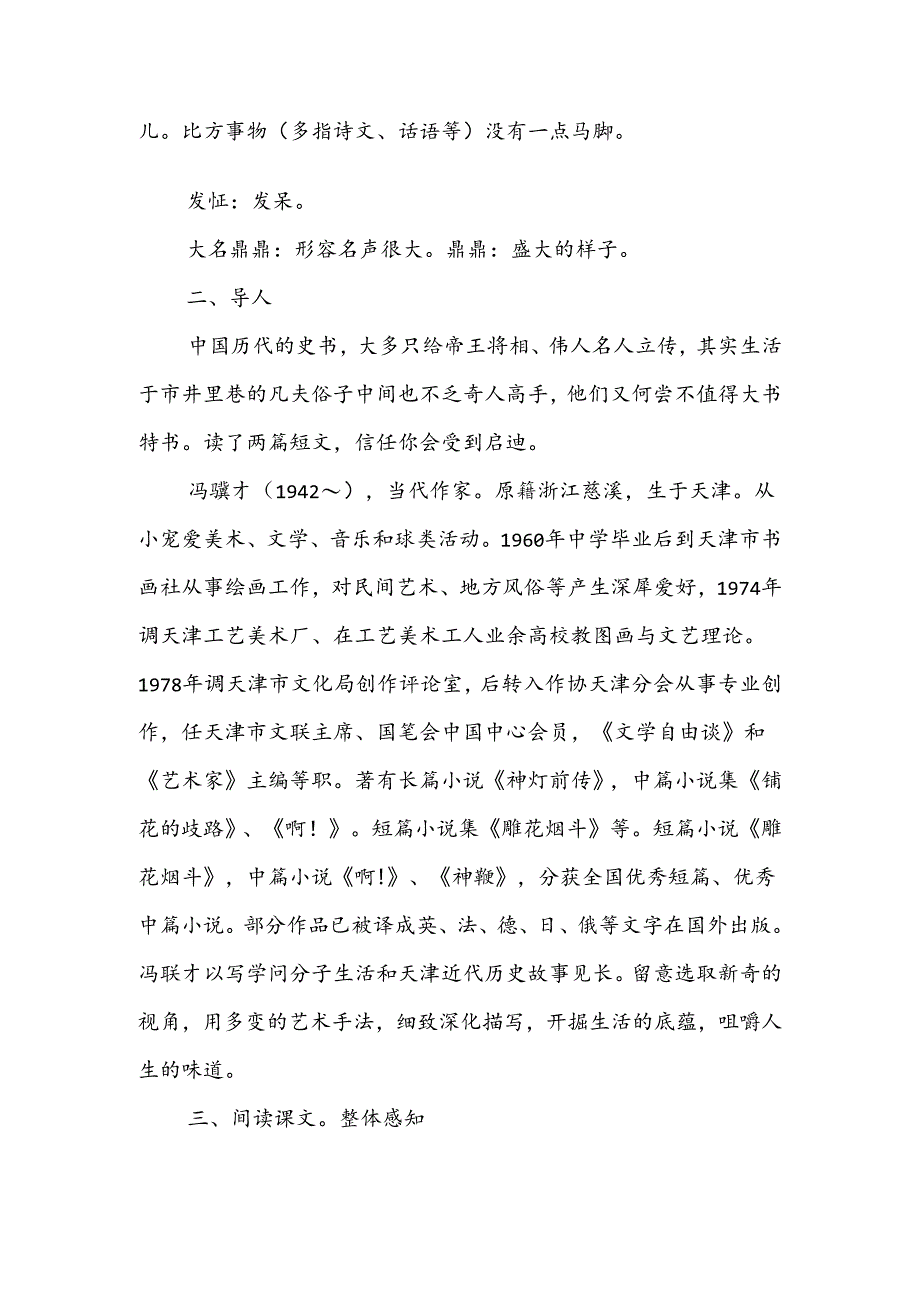 儿。比方事物（多指诗文、话语等）没有一点马脚。
发怔：发呆。
大名鼎鼎：形容名声很大。鼎鼎：盛大的样子。
二、导人
中国历代的史书，大多只给帝王将相、伟人名人立传，其实生活
于市井里巷的凡夫俗子中间也不乏奇人高手，他们又何尝不值得大书
特书。读了两篇短文，信任你会受到启迪。
冯骥才（1942～），当代作家。原籍浙江慈溪，生于天津。从
小宠爱美术、文学、音乐和球类活动。1960年中学毕业后到天津市书
画社从事绘画工作，对民间艺术、地方风俗等产生深犀爱好，1974年
调天津工艺美术厂、在工艺美术工人业余高校教图画与文艺理论。
1978年调天津市文化局创作评论室，后转入作协天津分会从事专业创
作，任天津市文联主席、国笔会中国中心会员，《文学自由谈》和
《艺术家》主编等职。著有长篇小说《神灯前传》，中篇小说集《铺
花的歧路》、《啊！》。短篇小说集《雕花烟斗》等。短篇小说《雕
花烟斗》，中篇小说《啊!》、《神鞭》，分获全国优秀短篇、优秀
中篇小说。部分作品已被译成英、法、德、日、俄等文字在国外出版。
冯联才以写学问分子生活和天津近代历史故事见长。留意选取新奇的
视角，用多变的艺术手法，细致深化描写，开掘生活的底蕴，咀嚼人
生的味道。
三、间读课文。整体感知